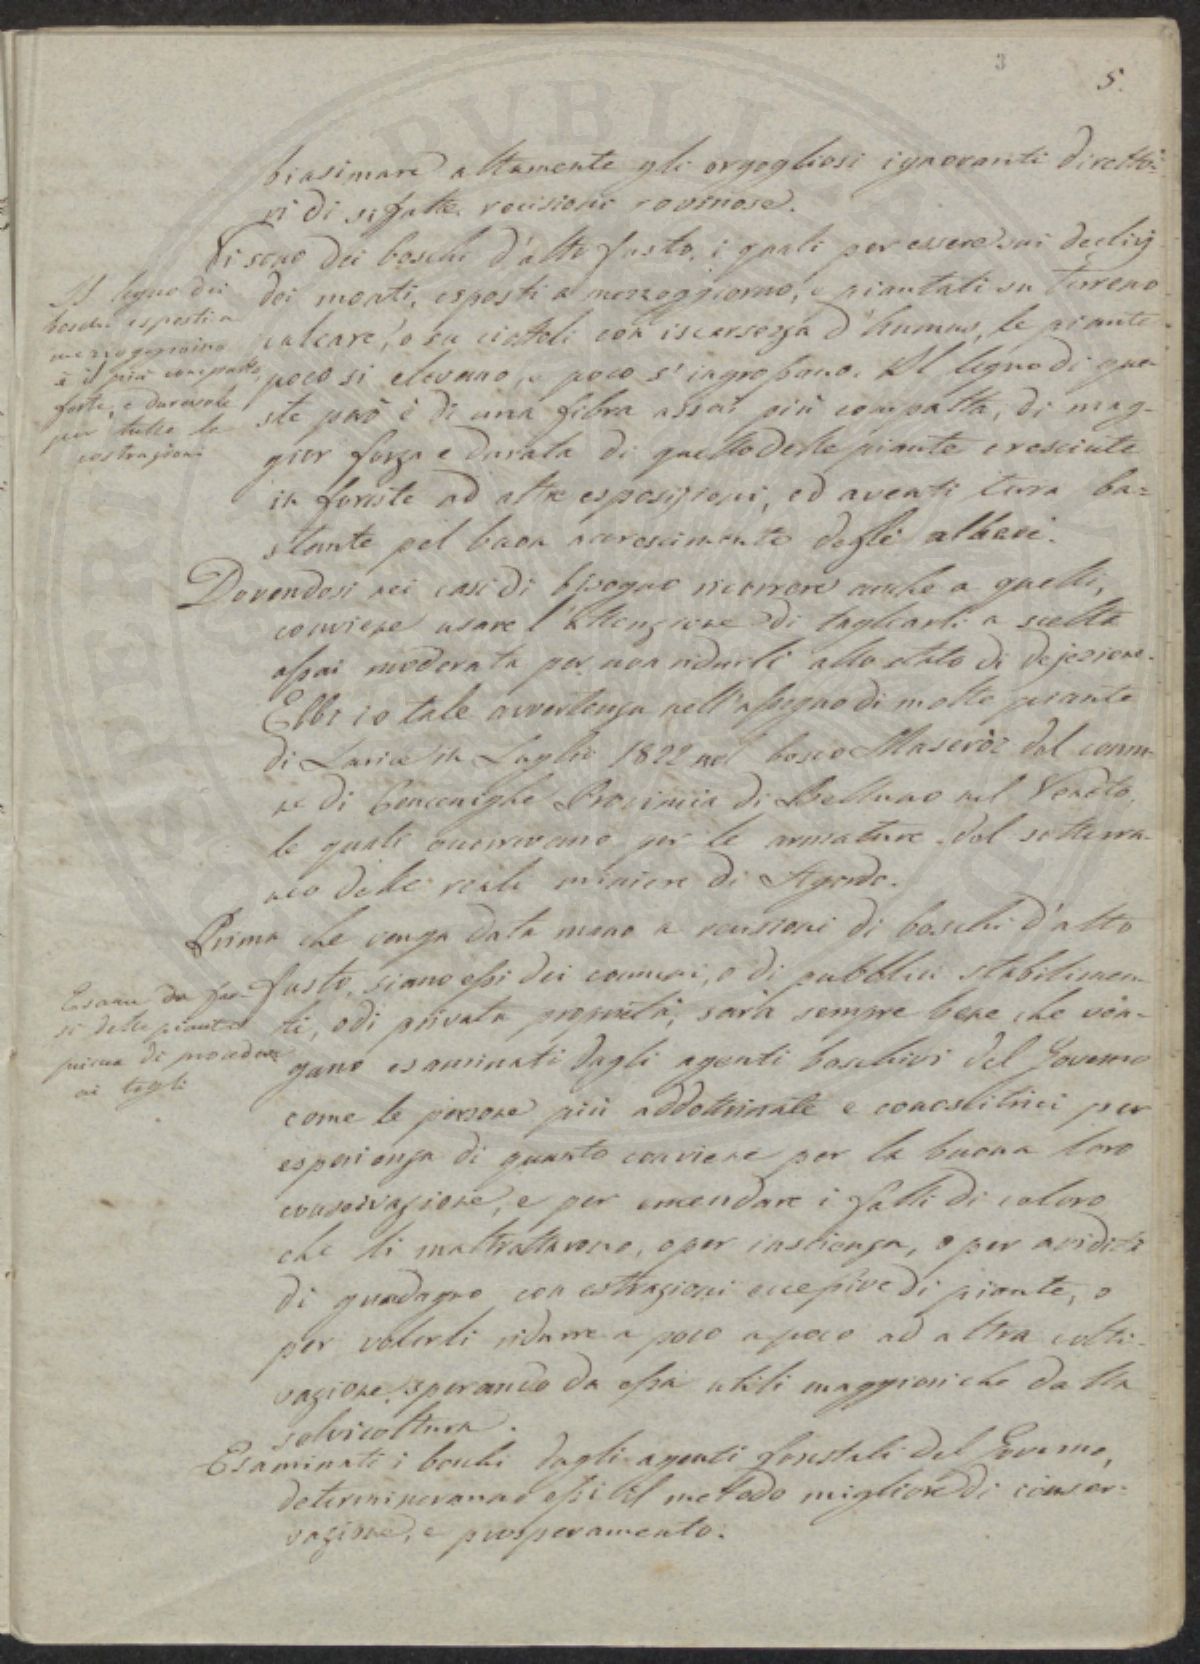 3
5.
biasimare altamente gli orgogliosi ignoranti diretto=
ri di sifatte recisioni rovinose.
Vi sono dei boschi d'alto fusto, i quali per essere sui declivj
dei monti, esposti a mezzoggiorno, e piantati su terreno
calcare, o su ciottoli con iscarsezza d'humus, le piante
poco si elevano, e poco s'ingrossano. Il legno di que-
ste però è di una fibra assai più compatta, di mag-
gior forza e durata di quello delle piante cresciute
in foreste ad altre esposizioni, ed aventi terra ba=
stante pel buon accrescimento degli alberi.
Il legno dei
boschi esposti a
mezzogiorno
è il più compatto,
forte, e durevole
per tutte le
costruzioni
Dovendosi nei casi di bisogno ricorrere anche a quelli,
conviene usare l'attenzione di tagliarli a scelta
assai moderata per non ridurli allo stato di dejezione.
Ebbi io tale avvertenza nell'assegno di molte piante
di Larice in Luglio 1822 nel bosco Maseròz del comu-
ne di Cencenighe Provincia di Belluno nel Veneto,
le quali occorrevano per le armature del sotterra-
neo delle reali miniere di Agordo.
Prima che venga data mano a recisioni di boschi d'alto
fusto, siano essi dei comuni, o di pubblici stabilimen-
ti, o di privata proprietà, sarà sempre bene che ven-
gano esaminati dagli agenti boschivi del Governo
come le persone più addottrinate e conoscitrici per
esperienza di quanto conviene per la buona loro
conservazione, e per emendare i falli di coloro
che li maltrattarono, o per inscienza, o per avidità
di guadagno con estrazioni eccessive di piante, o
per volerli ridurre a poco a poco ad altra colti-
vazione, sperando da essa utili maggiori che dalla
selvicoltura.
Esame da far-
si delle piante
prima di procedere
ai tagli
Esaminati i boschi dagli agenti forestali del Governo,
determineranno essi il metodo migliore di conser-
vazione, e prosperamento.